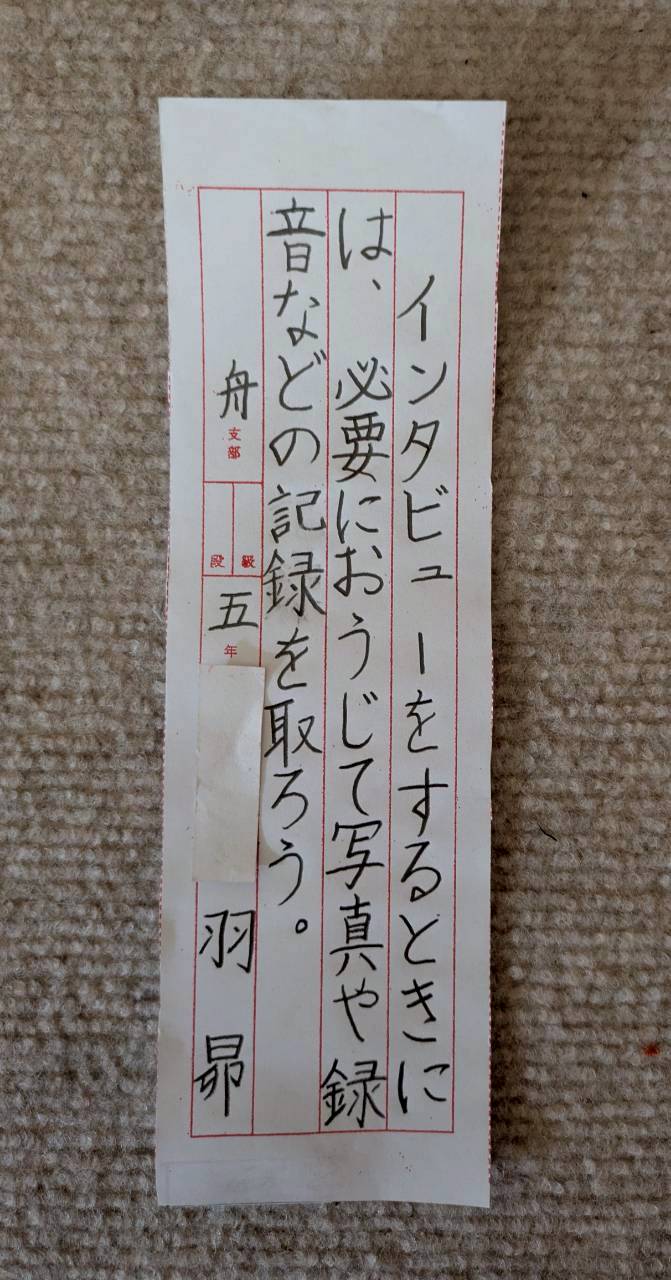 インタビューをするときに
は、必要におうじて写真や録
音などの記録を取ろう。
舟支部
段級
五年
羽昴